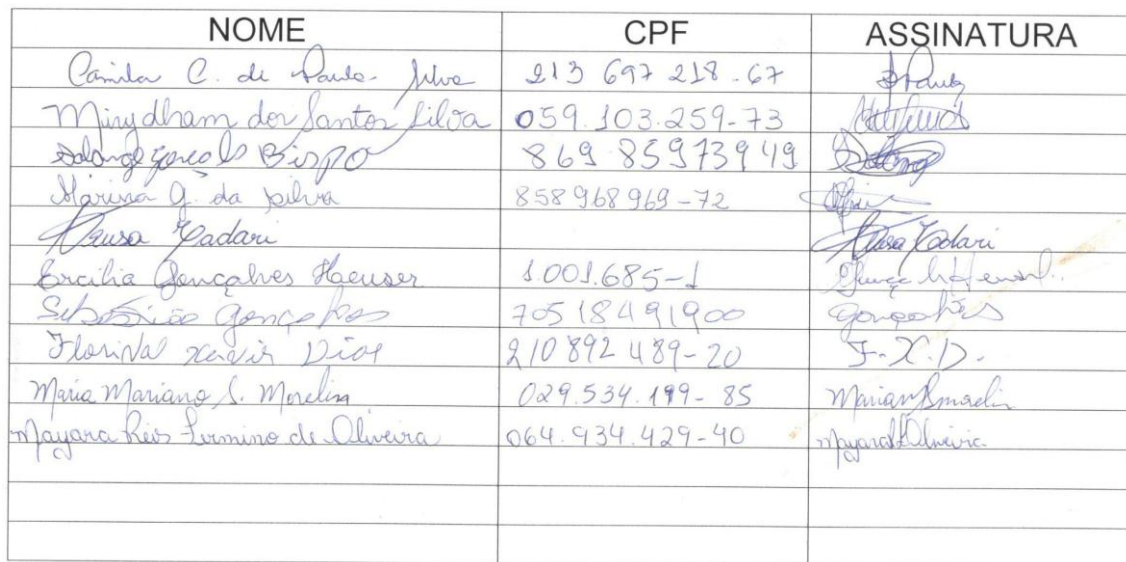 NOME CPF ASSINATURA
Camila C. de Paula Silva 213 697 218-67
Mirydham dos Santos Silva 059.103.259-73
Solange Bispo 869 85973949 Solange
Marina G. da Silva 858968969-72
Neusa Yadari Neusa Yadari
Ercilia Gonçalves Haeuser 1.001.685-1
Sebastião Gonçalves 70518491900 Gonçalves
Florival Xavier Dias 210892489-20 F.X.D.
Maria Mariano S. Morelin 029.534.199-85
Mayara Reis Firmino de Oliveira 064.934.429-40 Mayara Oliveira